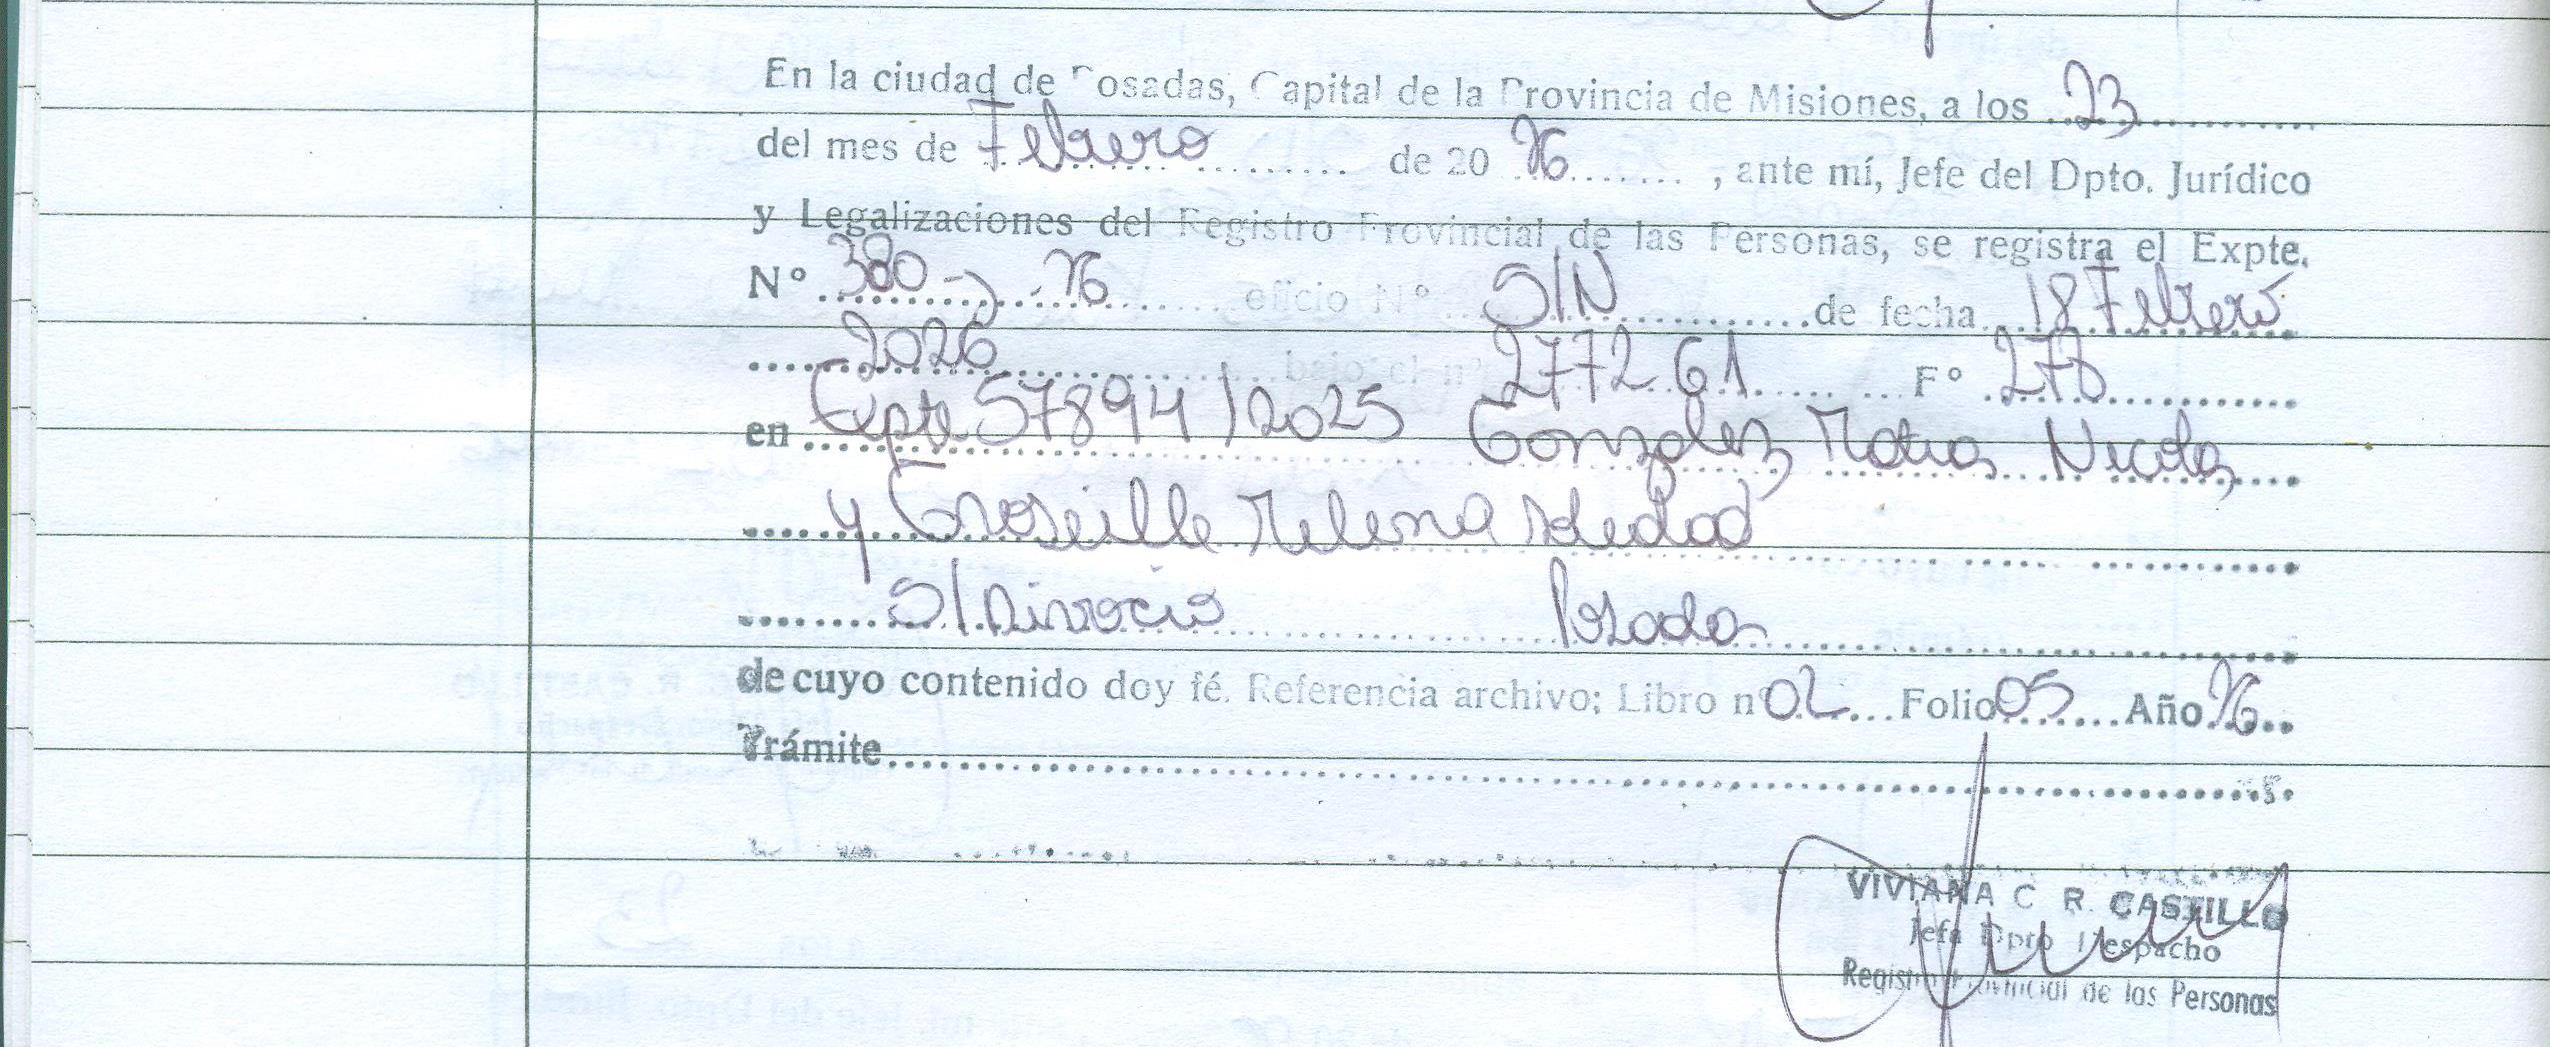 En la ciudad de Posadas, Capital de la Provincia de Misiones, a los 23
del mes de Febrero de 20 26, ante mí, Jefe del Dpto. Jurídico
y Legalizaciones del Registro Provincial de las Personas, se registra el Expte.
N° 380-J-26 oficio N° S/N de fecha 18 Febrero
2026 bajo el n° 277261 F° 278
en Expte 57894/2025 Gonzalez Matias Nicolas
y Groseille Melena Soledad
S/Divorcio Posadas
de cuyo contenido doy fé. Referencia archivo; Libro n° 02 Folio 05 Año 26
Trámite
VIVIANA C R. CASTILLO
Jefa Dpto Despacho
Registro Provincial de las Personas